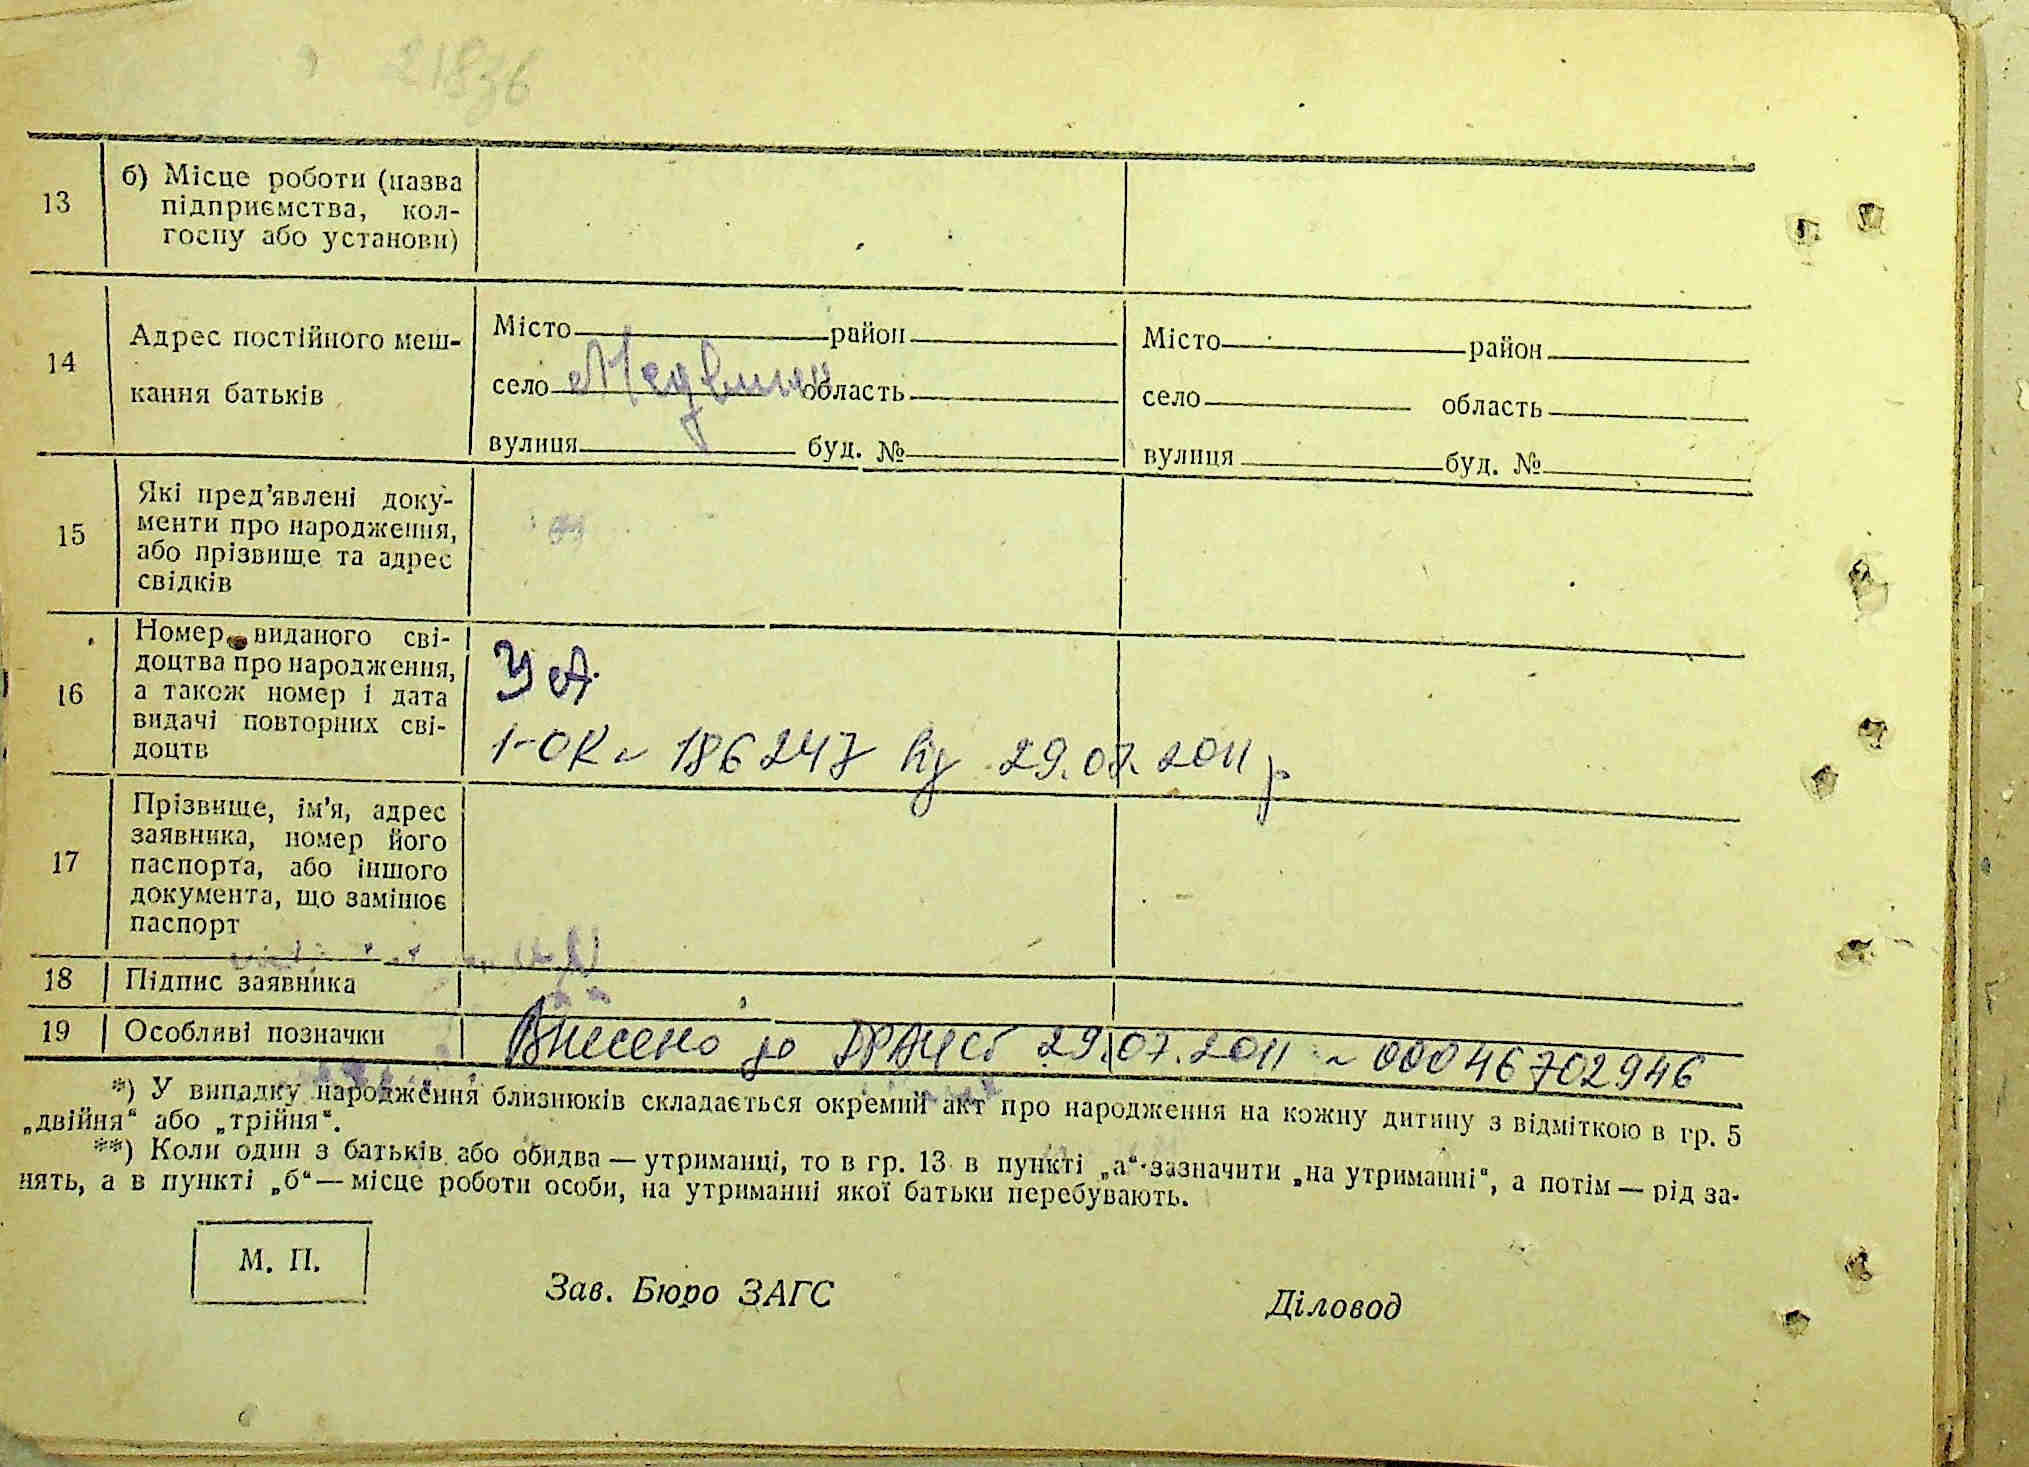 21836
13
б) Місце роботи (назва
підприємства, кол-
госпу або установи)
14
Адрес постійного меш-
кання батьків
Місто район
село Медвин область
вулиця буд. №
Місто район
село область
вулиця буд. №
15
Які пред'явлені доку-
менти про народження,
або прізвище та адрес
свідків
16
Номер виданого сві-
доцтва про народження,
а також номер і дата
видачі повторних сві-
доцтв
УА
1-ОК № 186247 від 29.07.2011 р
17
Прізвище, ім'я, адрес
заявника, номер його
паспорта, або іншого
документа, що замінює
паспорт
18
Підпис заявника
19
Особливі позначки
Внесено до ДРАЦСг 29.07.2011 № 00046702946
*) У випадку народження близнюків складається окремий акт про народження на кожну дитину з відміткою в гр. 5
„двійня“ або „трійня“.
**) Коли один з батьків або обидва — утриманці, то в гр. 13 в пункті „а“ зазначити „на утриманні“, а потім — рід за-
нять, а в пункті „б“ — місце роботи особи, на утриманні якої батьки перебувають.
М. П.
Зав. Бюро ЗАГС
Діловод